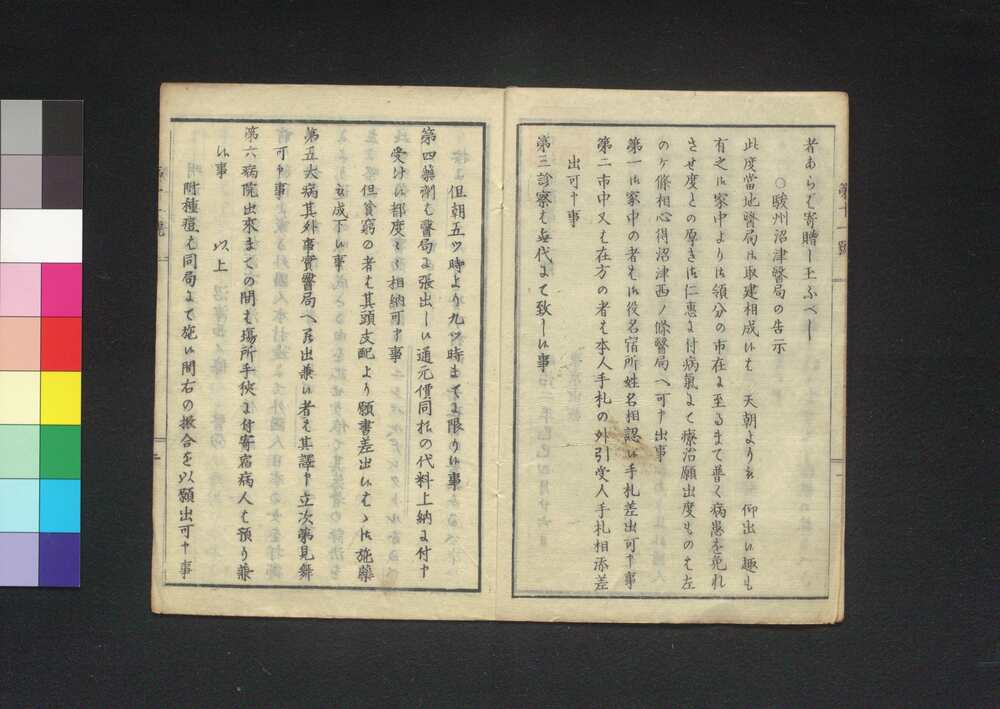 者あらば寄贈し玉ふべし
○駿州沼津醫局の告示
此度當地醫局御取建相成候も 天朝より被 仰出候趣も
有之御家中よりは領分の市在に至るまて普く病患を免れ
させ度との厚き御仁惠に付病氣にて療治願出度ものは左
のケ條相心得沼津西ノ條醫局へ可申出事
第一 御家中の者は御役名宿所姓名相認候手札差出可申事
第二 市中又は在方の者は本人手札の外引受人手札相添差
出可申事
第三 診察は無代にて致し候事
但朝五ツ時より九ツ時まてに限り候事
第四 藥劑は醫局に張出し候通元價同様の代料上納に付申
受け候都度々々相納可申事
但貧窮の者は其頭支配より願書差出候はゝ御施藥
被成下候事
第五 大病其外事實醫局へ罷出兼候者は其譯申立次第見舞
可申事
第六 病院出來まての間は場所手狹に付寄宿病人は預り兼
候事 以上
附種痘は同局にて施候間右の振合を以願出可申事
第十一號